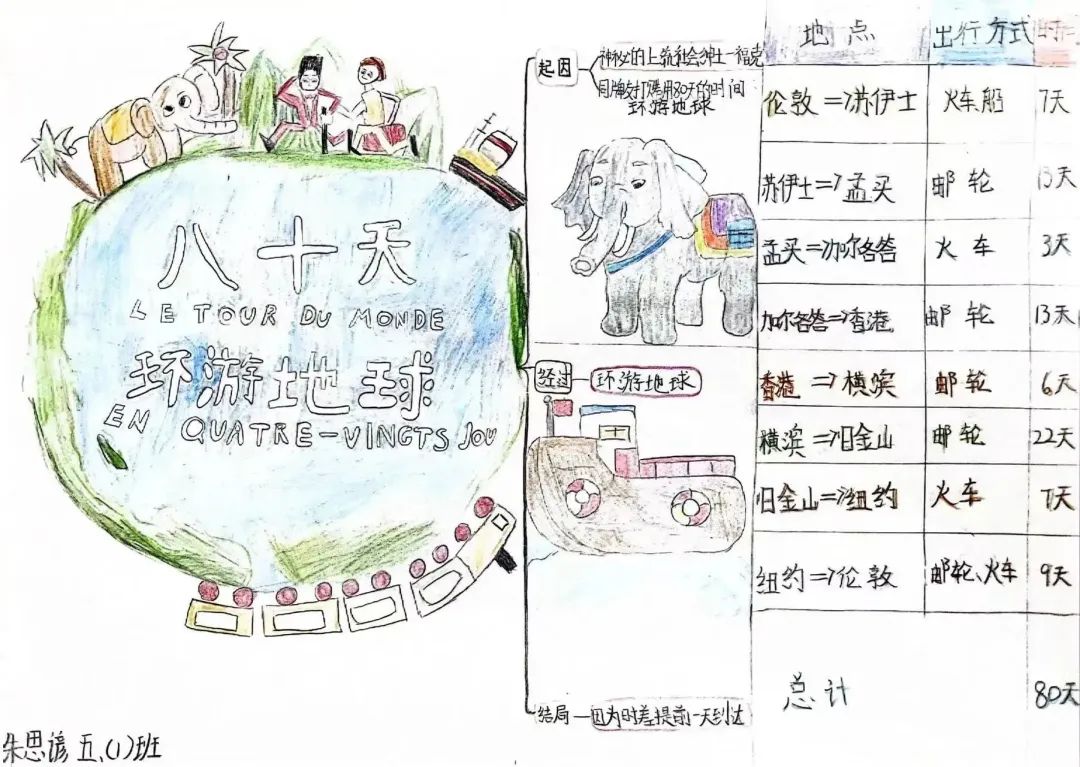 八十天
LE TOUR DU MONDE
环游地球
EN QUATRE-VINGTS JOU
朱思谚 五、(1)班
起因
神秘的上流社会绅士-福克
同牌友打赌用80天的时间
环游地球
经过
环游地球
结局
因为时差提前一天到达
地点 出行方式 时间
伦敦=>苏伊士 火车船 7天
苏伊士=>孟买 邮轮 13天
孟买=>加尔各答 火车 3天
加尔各答=>香港 邮轮 13天
香港=>横滨 邮轮 6天
横滨=>旧金山 邮轮 22天
旧金山=>纽约 火车 7天
纽约=>伦敦 邮轮、火车 9天
总计 80天